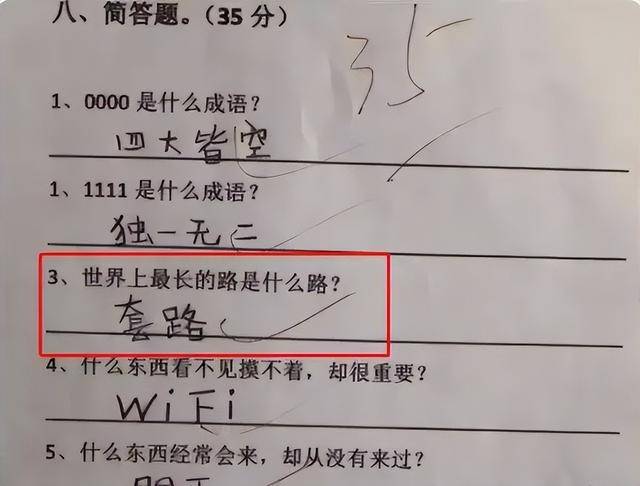 八、简答题。(35 分)
35
1、0000 是什么成语?
四大皆空
1、1111 是什么成语?
独一无二
3、世界上最长的路是什么路?
套路
4、什么东西看不见摸不着，却很重要?
WiFi
5、什么东西经常会来，却从没有来过?